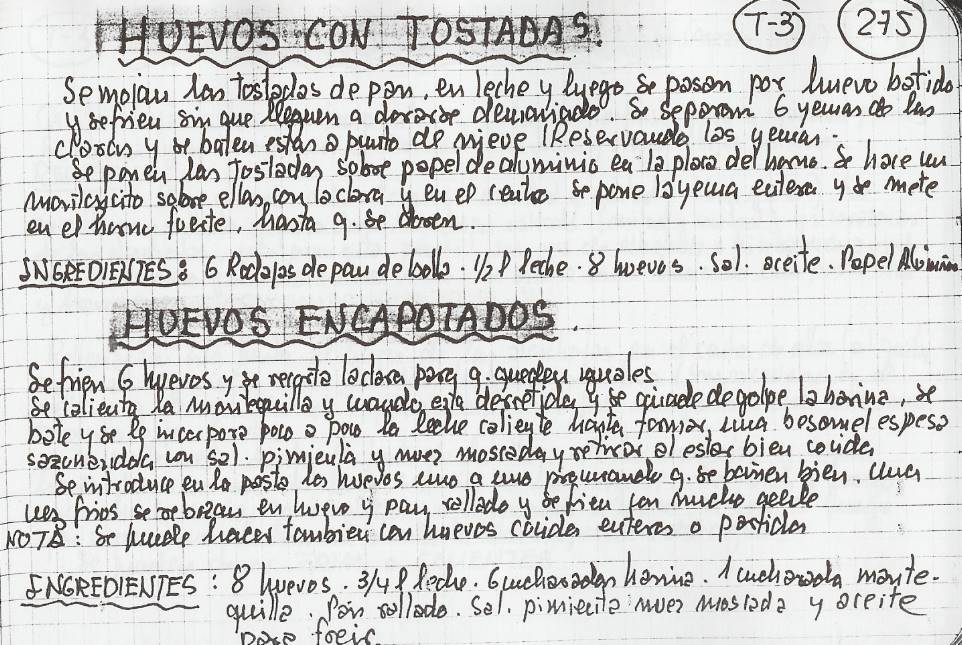 HUEVOS CON TOSTADAS. T-3 275
Se mojan las tostadas de pan, en leche y luego se pasan por huevo batido
y se frien sin que lleguen a dorarse demasiado. Se separan 6 yemas de las
claras y se baten estas a punto de nieve (Reservando las yemas.
Se ponen las Tostadas sobre papel de aluminio en la placa del horno. Se hace un
montoncito sobre ellas, con la clara y en el centro se pone la yema entera y se mete
en el horno fuerte, hasta q. se doren.
INGREDIENTES: 6 Rodajas de pan de bollo. 1/2 l leche. 8 huevos. Sal. aceite. Papel Aluminio
HUEVOS ENCAPOTADOS.
Se frien 6 huevos y se recorta la clara para q. queden iguales
Se calienta la mantequilla y cuando esta derretida, y se añade de golpe la harina, se
bate y se le incorpora poco a poco la leche caliente hasta formar una besamel espesa
sazonandola con sal. pimienta y nuez moscada y retirar al estar bien cocida
Se introduce en la pasta los huevos uno a uno procurando q. se bañen bien. Una
vez frios se rebozan en huevo y pan rallado y se frien con mucho aceite
NOTA: Se puede hacer tambien con huevos cocidos enteros o partidos
INGREDIENTES: 8 huevos. 3/4 l leche. 6 cucharadas harina. 1 cucharada mante-
quilla. Pan rallado. Sal. pimienta nuez moscada y aceite
para freir.